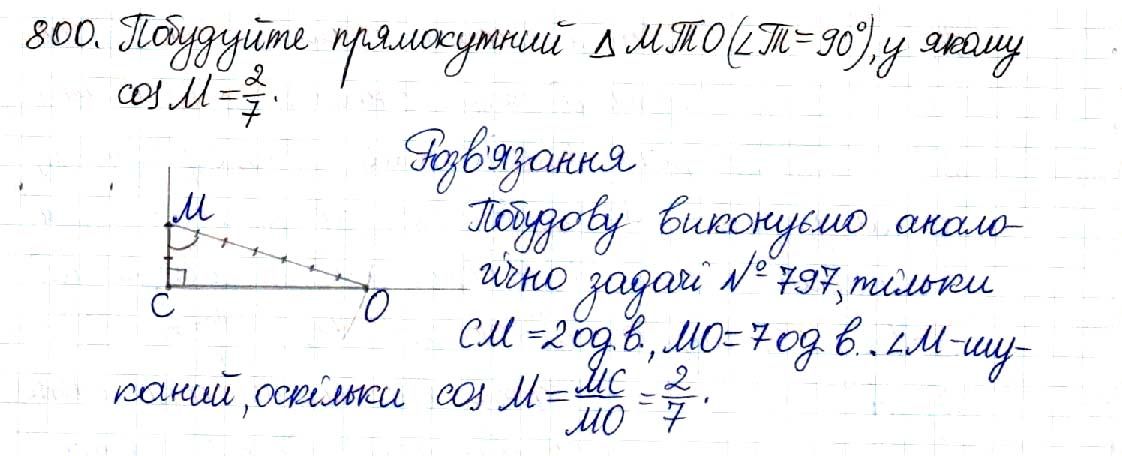 800. Побудуйте прямокутний Δ МТО(∠Т=90°), у якому
cos М = 2/7.
Розв'язання
М
С
О
Побудову виконуємо анало-
гічно задачі № 797, тільки
СМ = 2 од.в., МО = 7 од.в. ∠М - шу-
каний, оскільки cos М = МС/МО = 2/7.